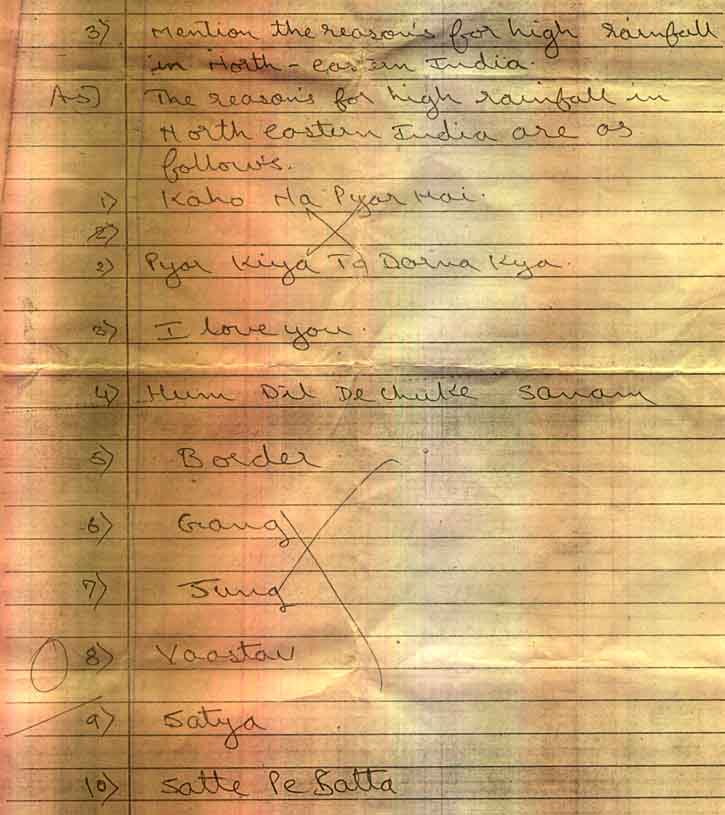 3) Mention the reason's for high rainfall
in North-eastern India.
A-3) The reason's for high rainfall in
North eastern India are as
follow's.
1) Kaho Na Pyar Hai.
2)
2) Pyar Kiya To Darna Kya.
3) I love you.
4) Hum Dil De Chuke Sanam
5) Border
6) Gang
7) Jung
8) Vaastav
9) Satya
10) Satte Pe Satta